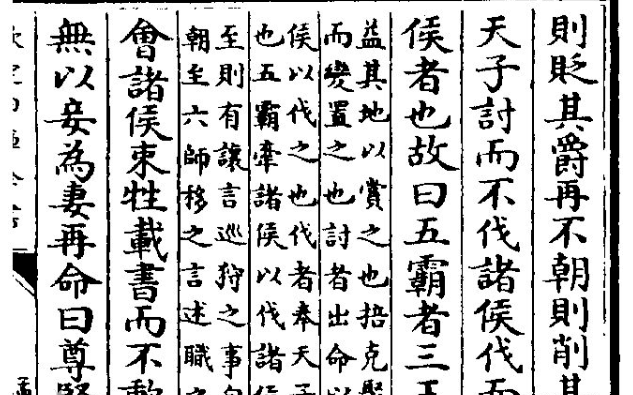 則貶其爵再不朝則削其
天子討而不伐諸侯伐而
侯者也故曰五霸者三王
益其地以賞之也掊克聚
而變置之也討者出命以
侯以伐之也伐者奉天子
也五霸牽諸侯以伐諸侯
至則有讓言巡狩之事自
朝至六師移之言述職之
會諸侯束牲載書而不
無以妾為妻再命曰尊賢